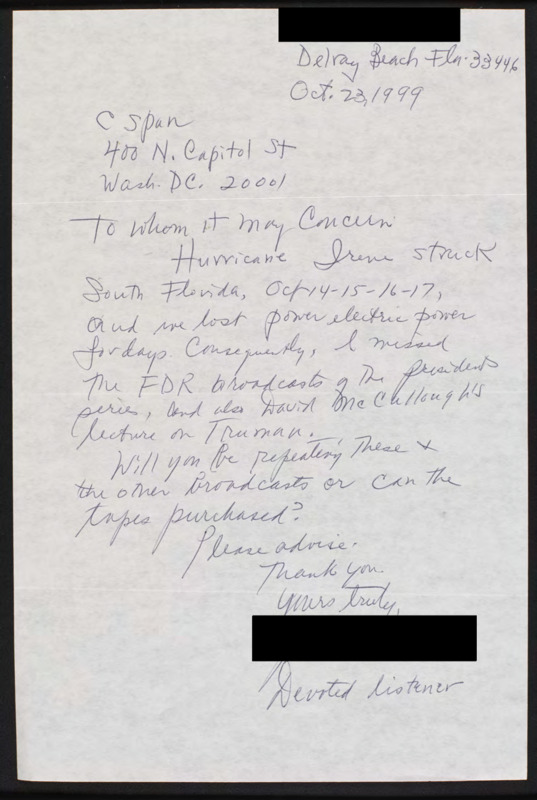 Delray Beach Fla. 33446
Oct. 23, 1999
C Span
400 N. Capitol St
Wash. DC. 20001
To whom it may Concern
Hurricane Irene struck
South Florida, Oct 14-15-16-17,
and we lost power electric power
for days. Consequently, I missed
the FDR broadcasts of the presidents
series, and also David McCullough's
lecture on Truman.
Will you be repeating these +
the other broadcasts or can the
tapes purchased?
Please advise.
Thank you.
Yours truly,
Devoted listener